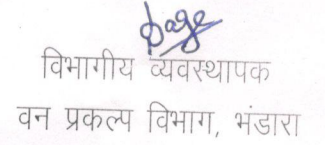 विभागीय व्यवस्थापक
वन प्रकल्प विभाग, भंडारा